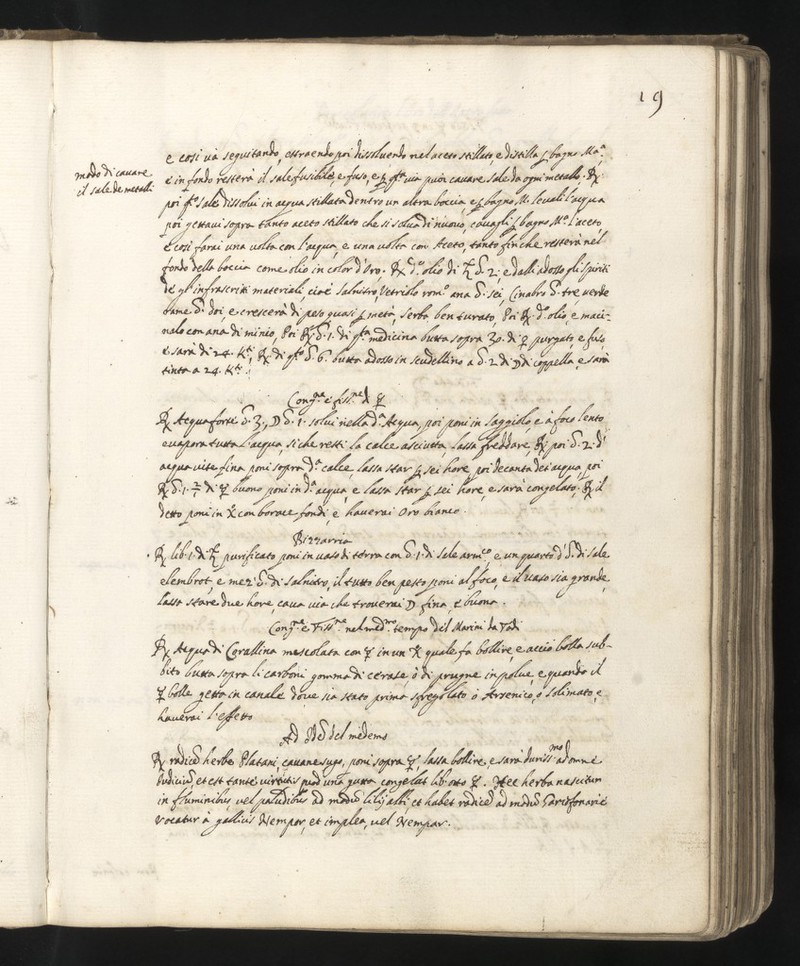 19
e cosi via seguitando, estraendo poi dissoluendo nel aceto stillato, e distilla ꝑ bagno Ma:ª
modo di cauare
il sale de metalli
e in fondo resterà il sale fusibile, e fuso, e ꝑ q.ta via puoi cauare sale da ogni metallo. ℞
poi q.to sale dissolui in acqua stillata dentro un altra boccia e ꝑ bagno M. leuali l'acqua
poi gettaui sopra tanto aceto stillato che si solua di nuouo, cauagli ꝑ bagno M.º l'aceto
e cosi farai una volta con l'acqua, e una volta con Aceto, tanto fin che resterà nel
fondo della boccia come olio in color d'Oro. ℞ d.º olio di ♄ 2; e dalli adosso gli spiriti
de gl'infrascritti materiali, cioè salnitro, Vetriolo rom.º ana sei, Cinabro tre, verde
rame doi, e crescerà di peso quasi ꝑ metà, serba ben turato, Poi ℞ d.º olio, e maci-
nalo con ana di minio, Poi ℞ 1. di q.ta medicina butta sopra 30. di ♀ purgato, e fuso
e sarà di 24. K.ti, ℞ di q.to 6. butta adosso in scudellino a 2 di ☽ di coppella, e sarà
tinta a 24. K.ti
Cong.ne e fiss.ne d ☿
℞ Acqua forte 3., ☽ 1. solui nella d.ª Acqua, poi poni in saggiolo, e à foco lento
euapora tutta l'acqua, si che resti la calce asciutta, lassa freddare, ℞ poi 2. d'
acqua vite fina poni sopra d.ª calce, lassa star ꝑ sei hore, poi decanta dei acqua, poi
℞ 1. ½ di ☿ buono poni in d.ª acqua, e lassa star ꝑ sei hore, e sarà congelato. ℞ il
detto poni in con borace fondi, e hauerai Oro bianco.
Bizzarria
℞ lib. 1. di ♄ purificato poni in uaso di terra con 1. di sale arm.co, e un quarto d' di sale
elembrot, e mez' di salnitro, il tutto ben pesto poni al foco, e il uaso sia grande,
lassa stare due hore, caua via che trouerai ☽ fina, e buona.
Cong.ne e Fiss.ne nel med.mo tempo del Marini da Todi
℞ Acqua di Corallina mescolata con ☿ in un quale fa bollire, e acciò bolla sub-
bito butta sopra li carboni gomma di cerase, ò di prugne in polue, e quando il
☿ bolle getta in canale doue sia stato prima sfregolato ò Arsenico, ò solimato, e
hauerai l'effetto
Ad del medemo
℞ radice herbe Platani, cauane sugo, poni sopra ☿, lassa bollire, e sarà duriss.mo ad omne
Iudiciũ, et est tante virtutis quod una gutta congelat lib. otto ☿. Hec herba nascitur
in fluminibus, vel paludibus ad modũ lilij albi et habet radice ad modũ
vocatur à gallicis Nempor, et implea, vel Nempar.